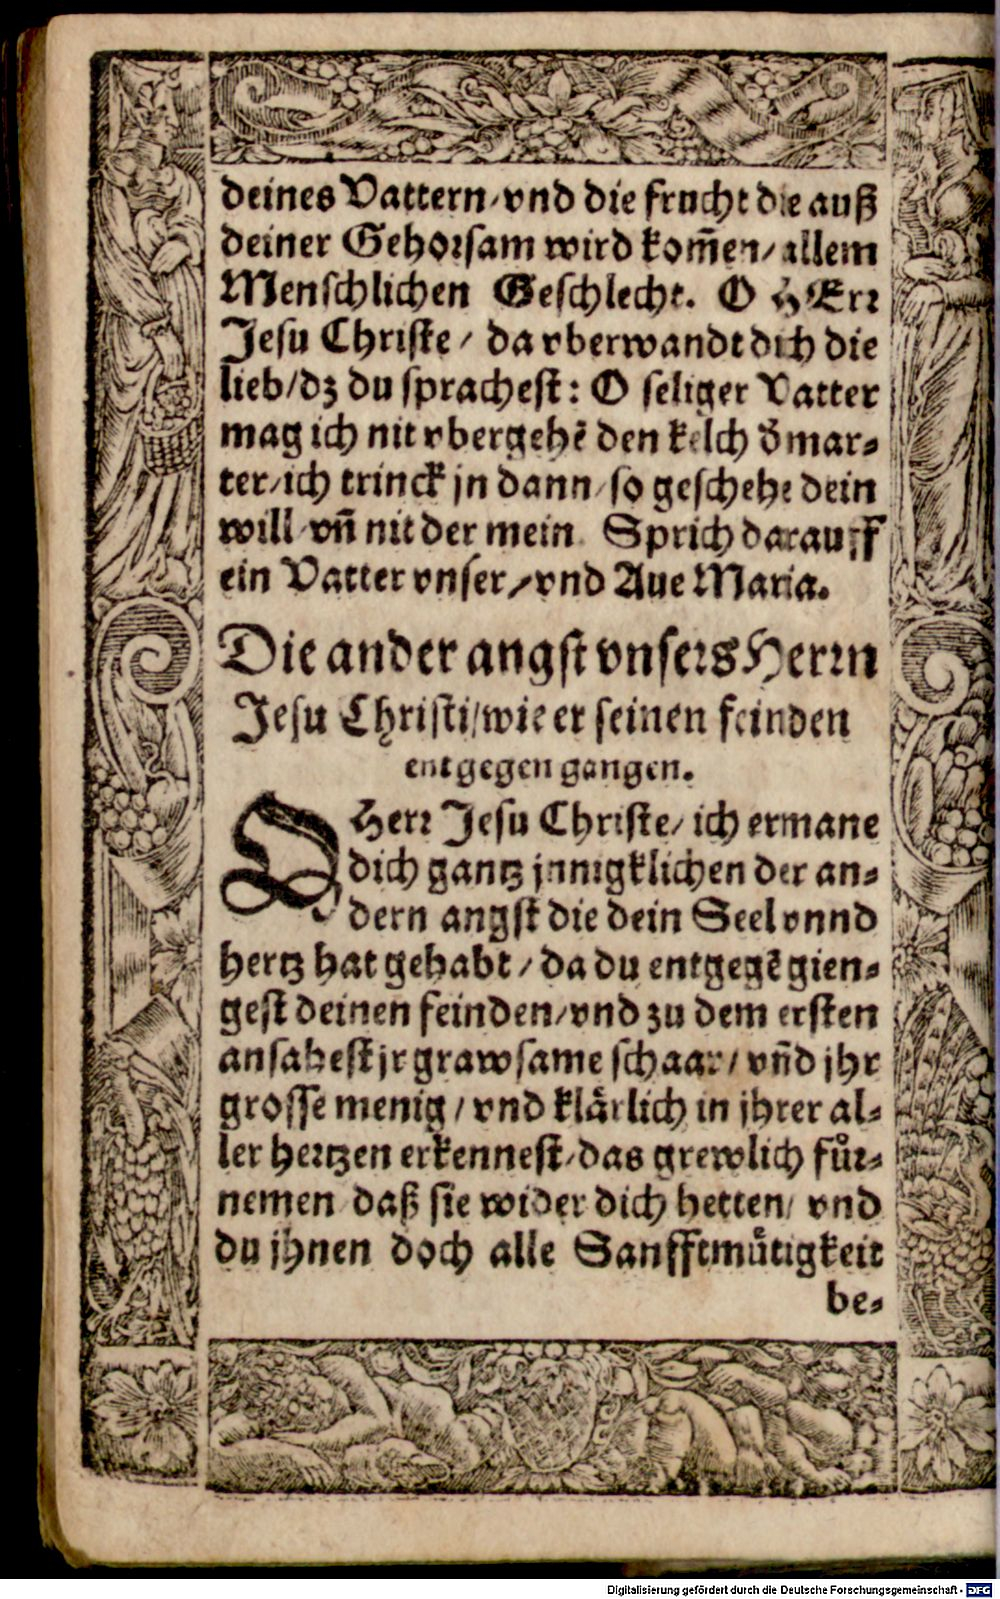 deines Vattern/vnd die frucht die auß
deiner Gehorsam wird kom̃en/allem
Menschlichen Geschlecht. O HErr
Jesu Christe/ da vberwandt dich die
lieb/dz du sprachest: O seliger Vatter
mag ich nit vbergehẽ den kelch d̕ mar-
ter/ich trinck jn dann/so geschehe dein
will/vñ nit der mein. Sprich darauff
ein Vatter vnser/vnd Aue Maria.
Die ander angst vnsers Herrn
Jesu Christi/wie er seinen feinden
entgegen gangen.
O Herr Jesu Christe/ ich ermane
dich gantz jnnigklichen der an-
dern angst die dein Seel vnnd
hertz hat gehabt/da du entgegẽ gien-
gest deinen feinden/vnd zu dem ersten
ansahest jr grawsame schaar/ vñd jhr
grosse menig/vnd klärlich in jhrer al-
ler hertzen erkennest/das grewlich fůr-
nemen daß sie wider dich hetten/ vnd
du jhnen doch alle Sanfftmůtigkeit
be-
Digitalisierung gefördert durch die Deutsche Forschungsgemeinschaft - DFG